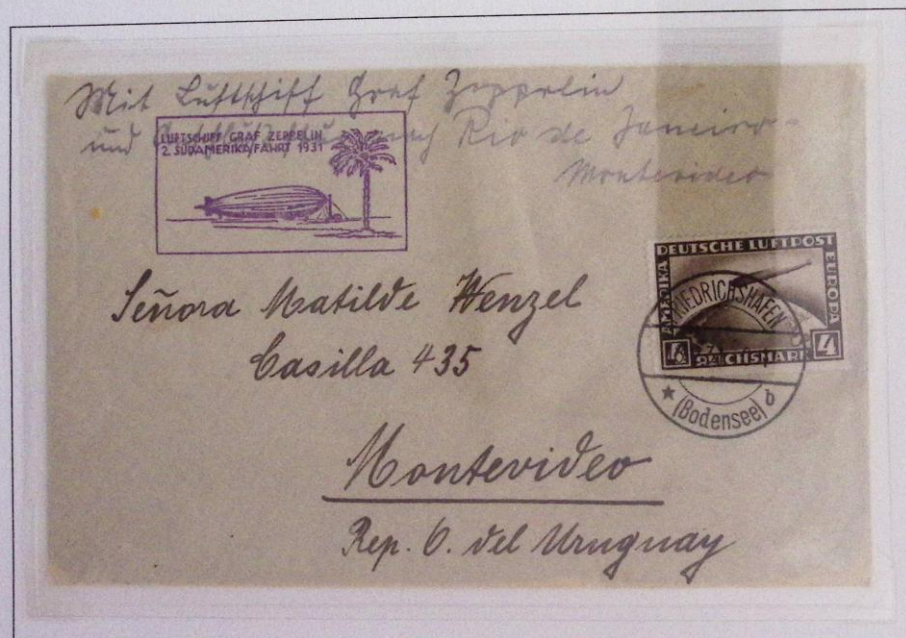 Mit Luftschiff Graf Zeppelin
und nach Rio de Janeiro -
Montevideo
LUFTSCHIFF GRAF ZEPPELIN
2. SÜDAMERIKAFAHRT 1931
Señora Matilde Wenzel
Casilla 435
Montevideo
Rep. O. del Uruguay
DEUTSCHE LUFTPOST
AMERIKA
EUROPA
4 REICHSMARK 4
FRIEDRICHSHAFEN
(Bodensee) b